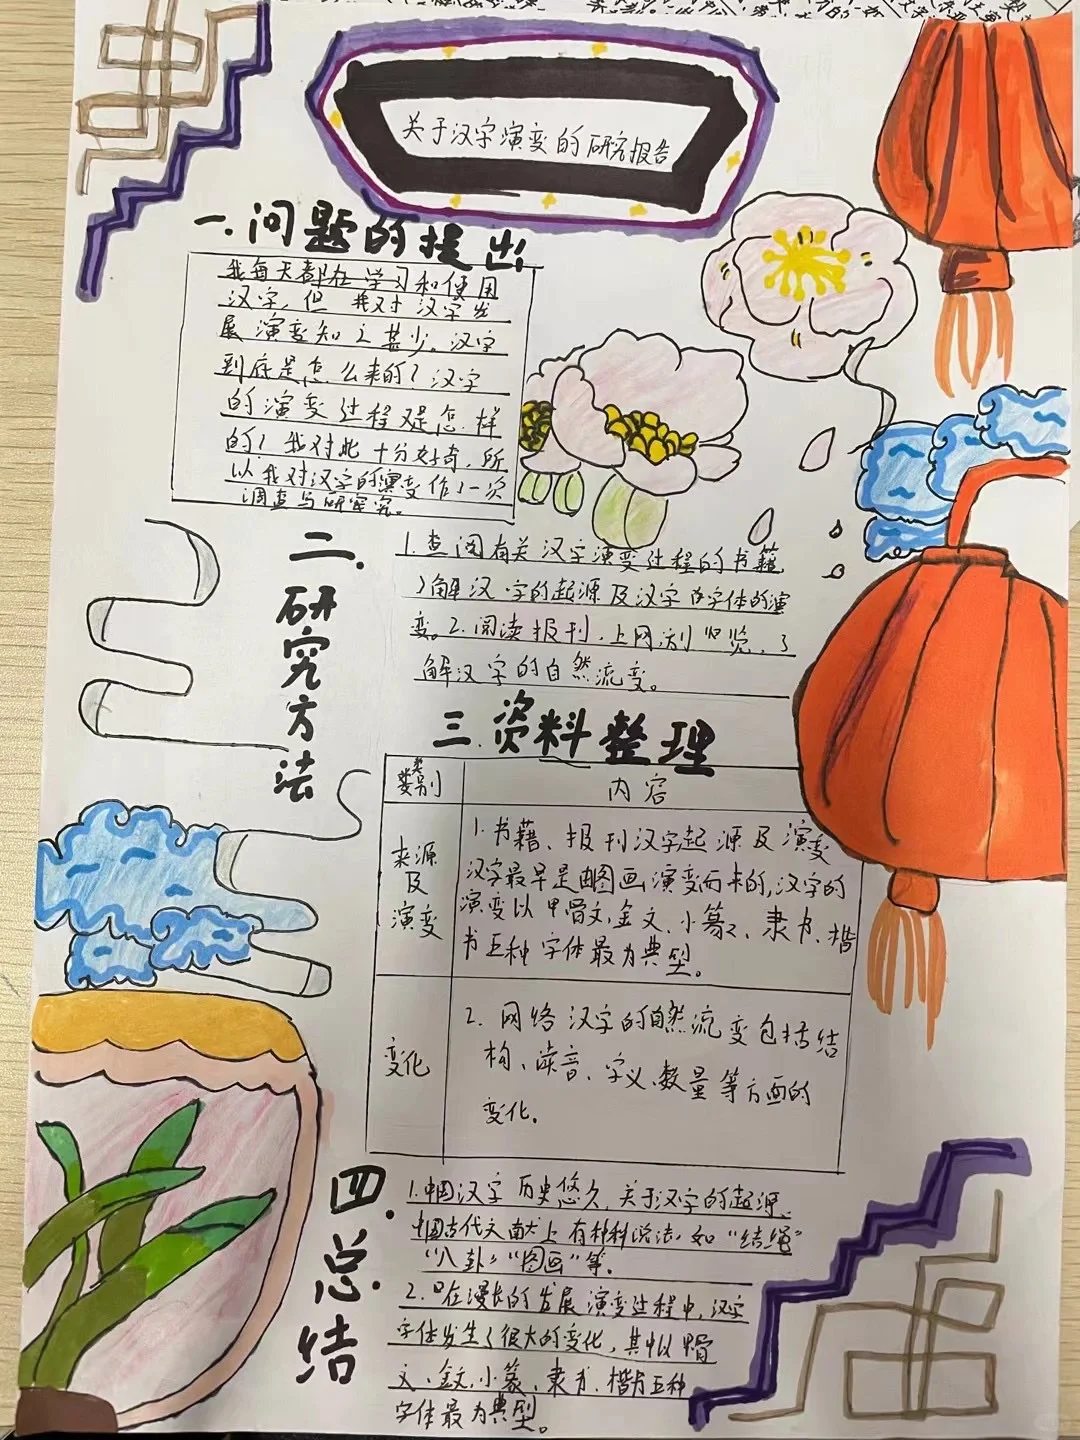 关于汉字演变的研究报告
一.问题的提出
我每天都在学习和使用
汉字，但我对汉字发
展演变知之甚少。汉字
到底是怎么来的？汉字
的演变过程是怎样
的？我对此十分好奇，所
以我对汉字的演变作了一次
调查与研究。
二.研究方法
1.查阅有关汉字演变过程的书籍
了解汉字的起源及汉字字体的演
变。2.阅读报刊，上网浏览，了
解汉字的自然流变。
三.资料整理
类别
内容
来源
及
演变
1.书籍、报刊汉字起源及演变
汉字最早是由图画演变而来的，汉字的
演变以甲骨文、金文、小篆、隶书、楷
书五种字体最为典型。
变化
2.网络汉字的自然流变包括结
构、读音、字义、数量等方面的
变化。
四.总结
1.中国汉字历史悠久，关于汉字的起源，
中国古代文献上有种种说法，如“结绳”
“八卦”“图画”等。
2.在漫长的发展演变过程中，汉字
字体发生了很大的变化，其中以甲骨
文、金文、小篆、隶书、楷书五种
字体最为典型。